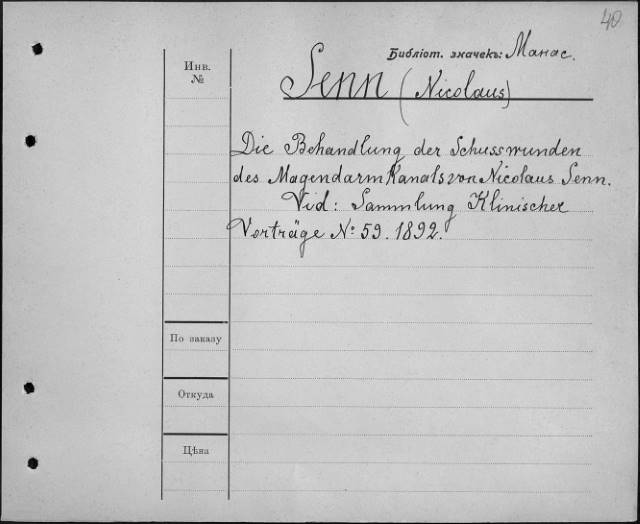 40
Библіот. значекъ: Манас.
Инв.
№
Senn (Nicolaus)
Die Behandlung der Schusswunden
des Magendarmkanals von Nicolaus Senn.
Vid: Sammlung Klinischer
Vorträge № 59. 1892.
По заказу
Откуда
Цѣна